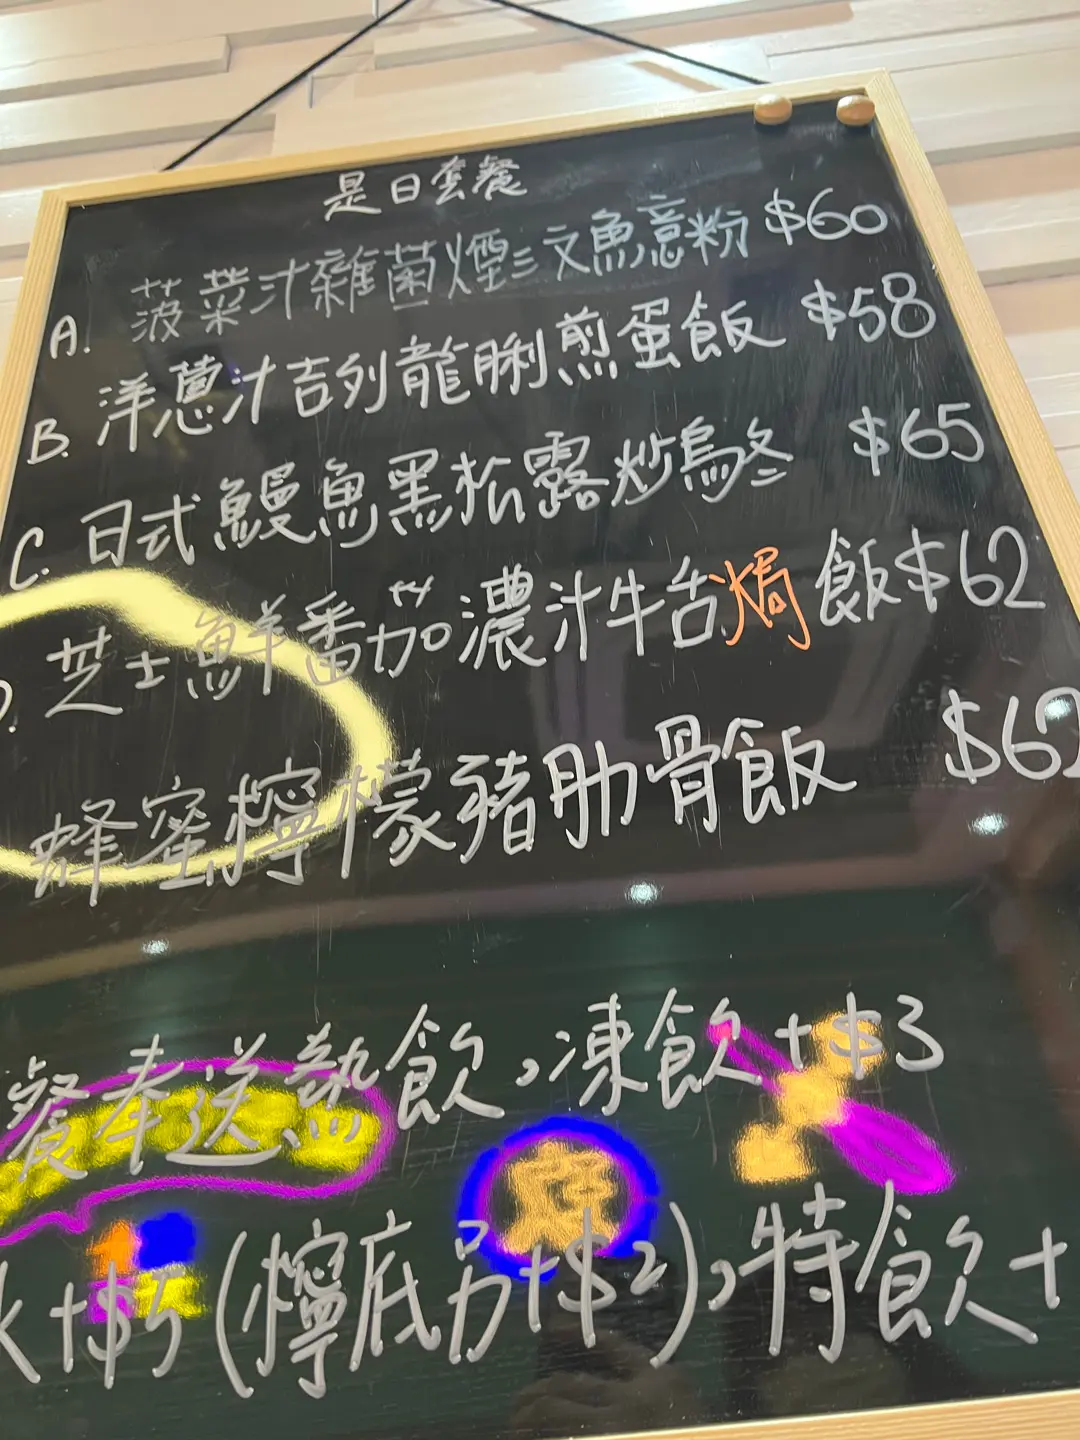 是日套餐
A. 菠菜汁雜菌煙三文魚意粉 $60
B. 洋蔥汁吉列龍脷煎蛋飯 $58
C. 日式鰻魚黑松露炒烏冬 $65
D. 芝士鮮番茄濃汁牛舌焗飯 $62
蜂蜜檸檬豬肋骨飯 $62
餐奉送熱飲，凍飲+$3
+$5(檸底另+$2)，特飲+